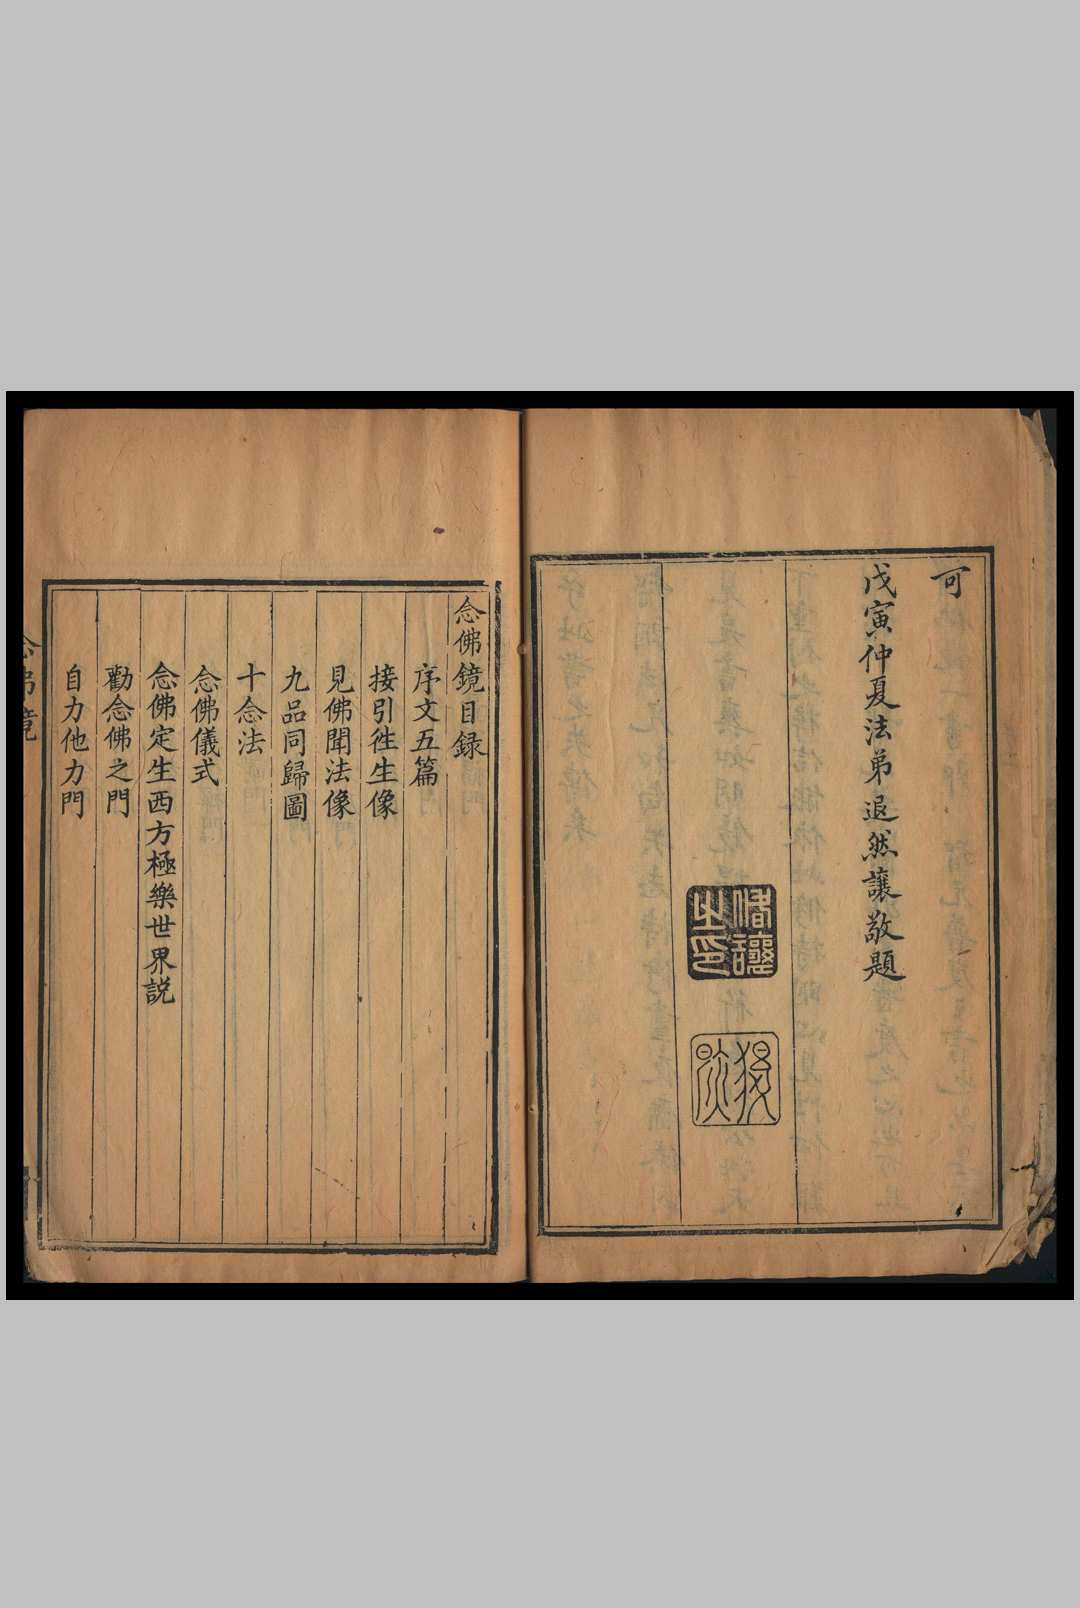 可
戊寅仲夏法弟退然讓敬題
念佛鏡目録
序文五篇
接引徃生像
見佛聞法像
九品同歸圖
十念法
念佛儀式
念佛定生西方極樂世界説
勸念佛之門
自力他力門
念佛鏡